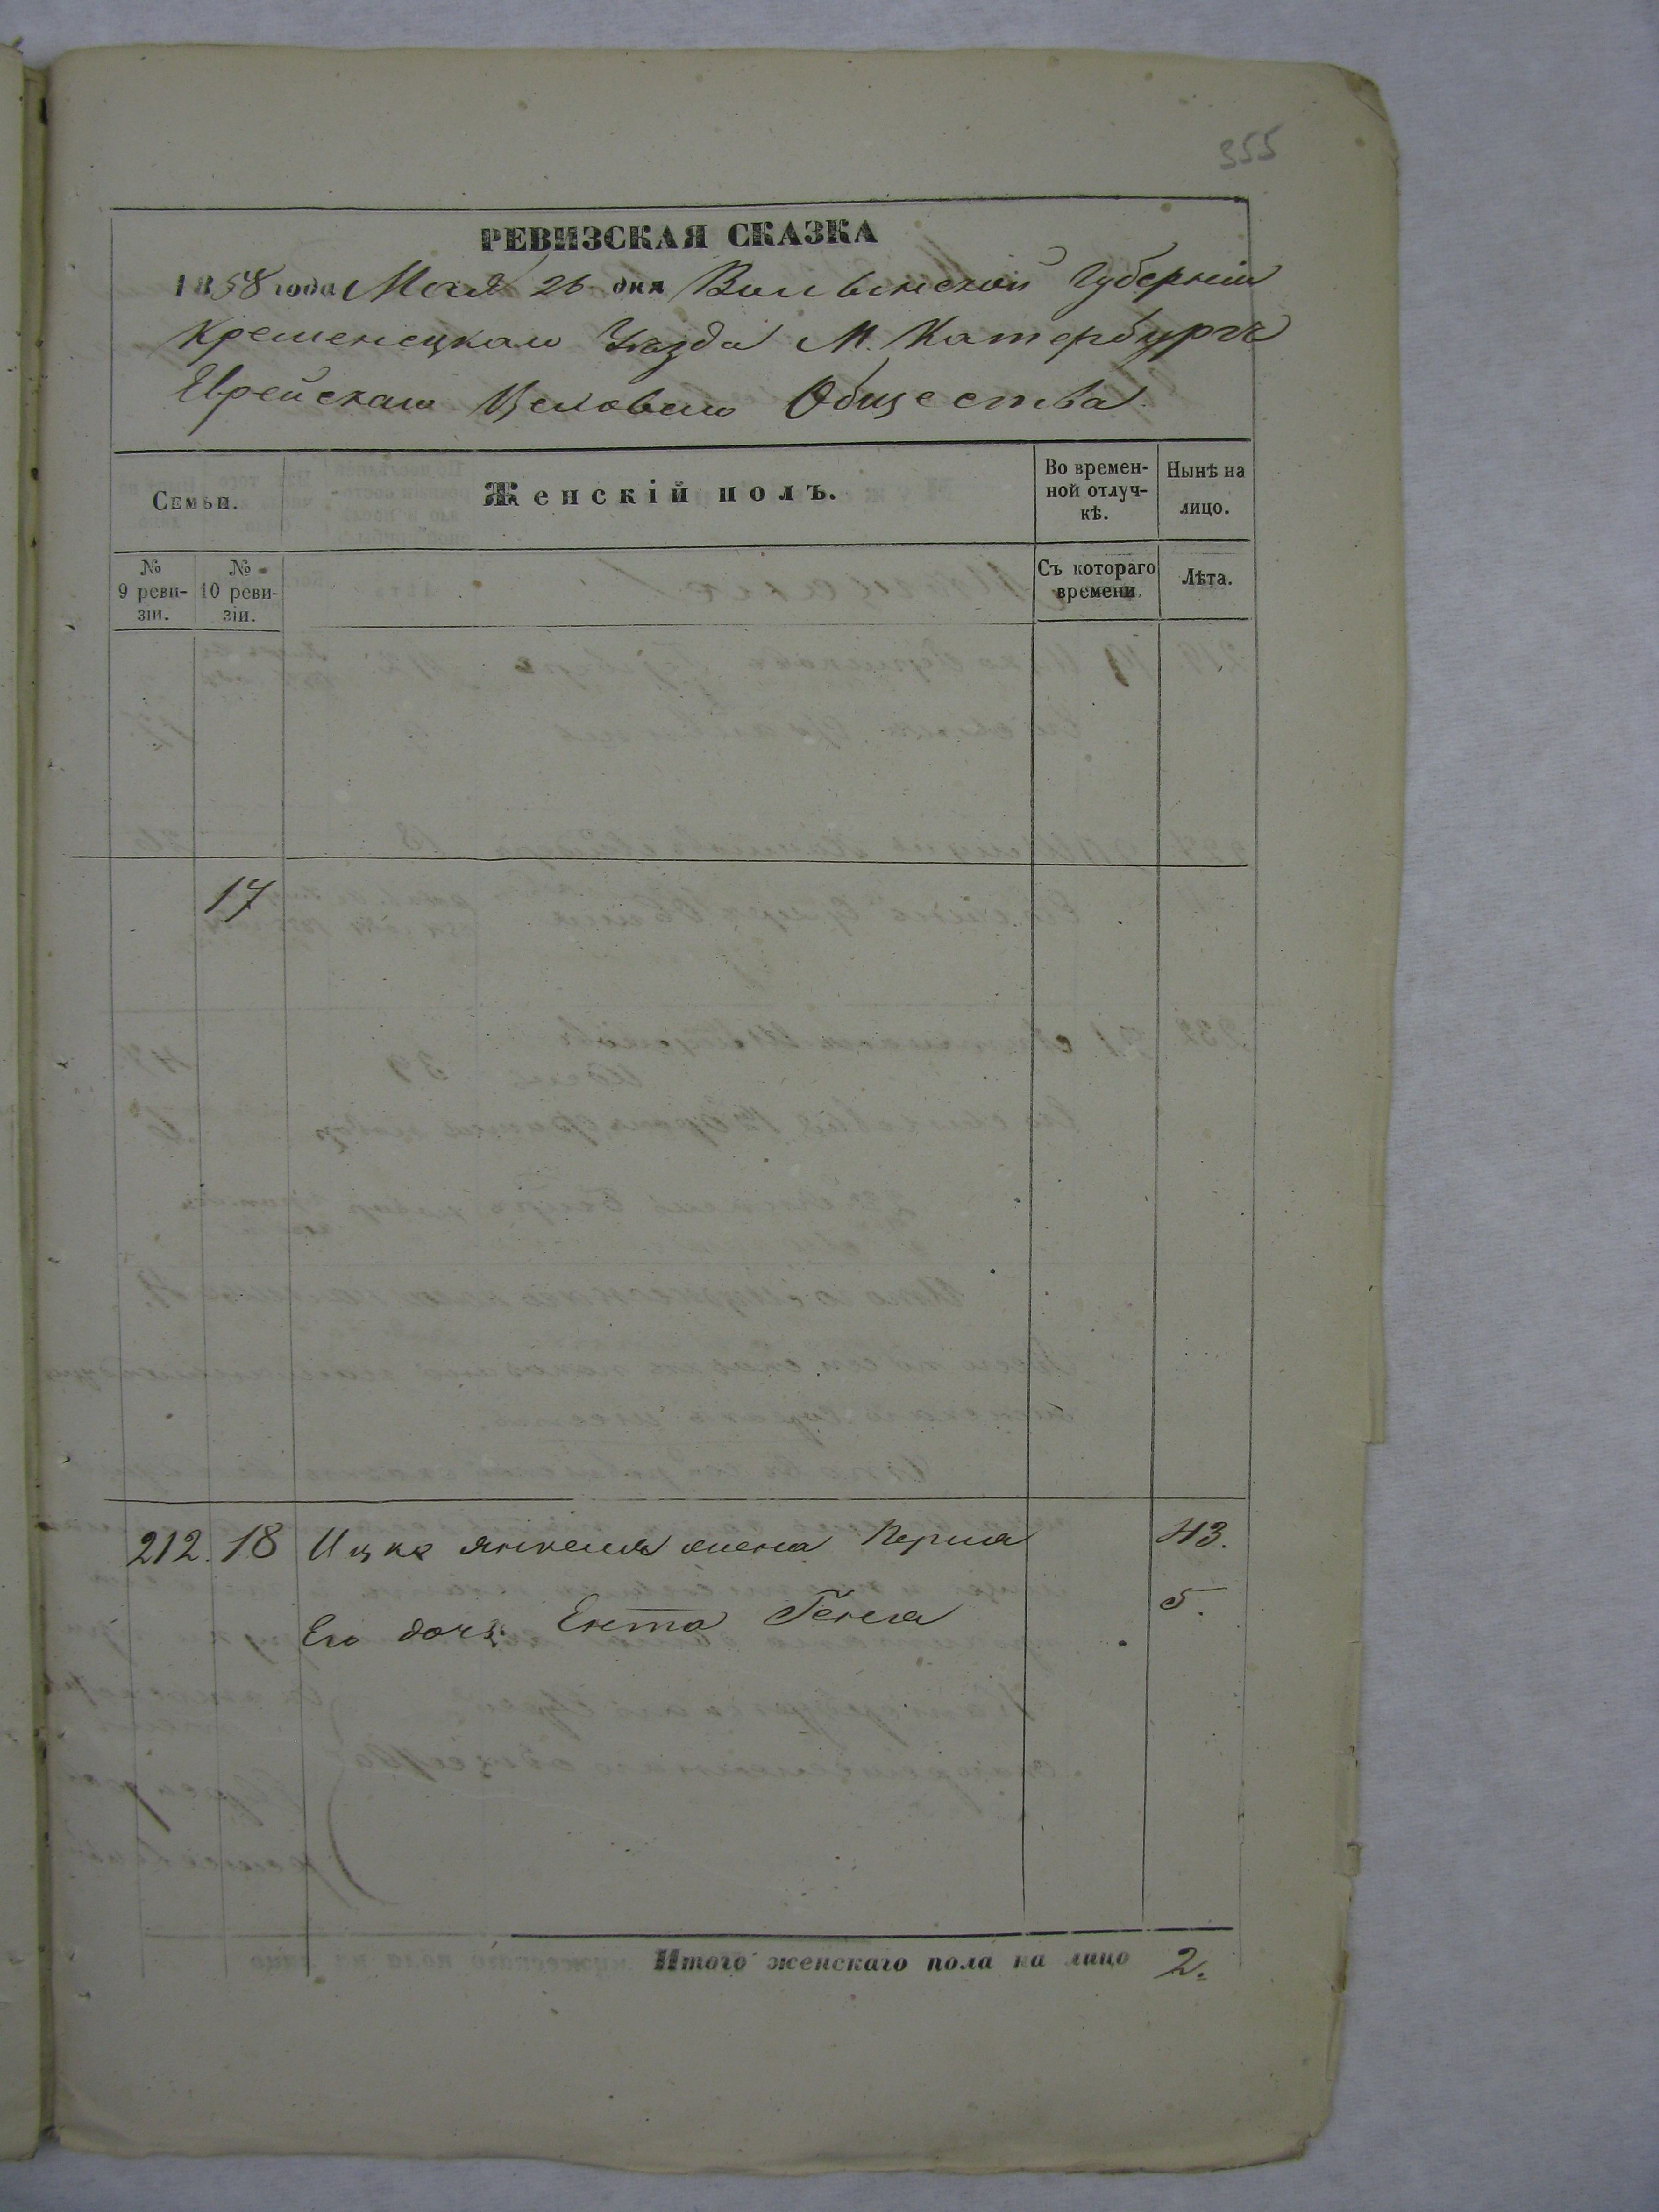 355
РЕВИЗСКАЯ СКАЗКА
1858 года Мая 26 дня Волынской Губерніи
Кременецкаго Уѣзда М. Катербурга
Еврейскаго Общества
Семьи.
Женскій полъ.
Во времен-
ной отлуч-
кѣ.
Нынѣ на
лицо.
№
9 реви-
зіи.
№
10 реви-
зіи.
Съ котораго
времени
Лѣта.
17
212. 18 Ицка Янкеля жена Перля 43.
Его дочь Ента Генея 5.
Итого женскаго пола на лицо 2.